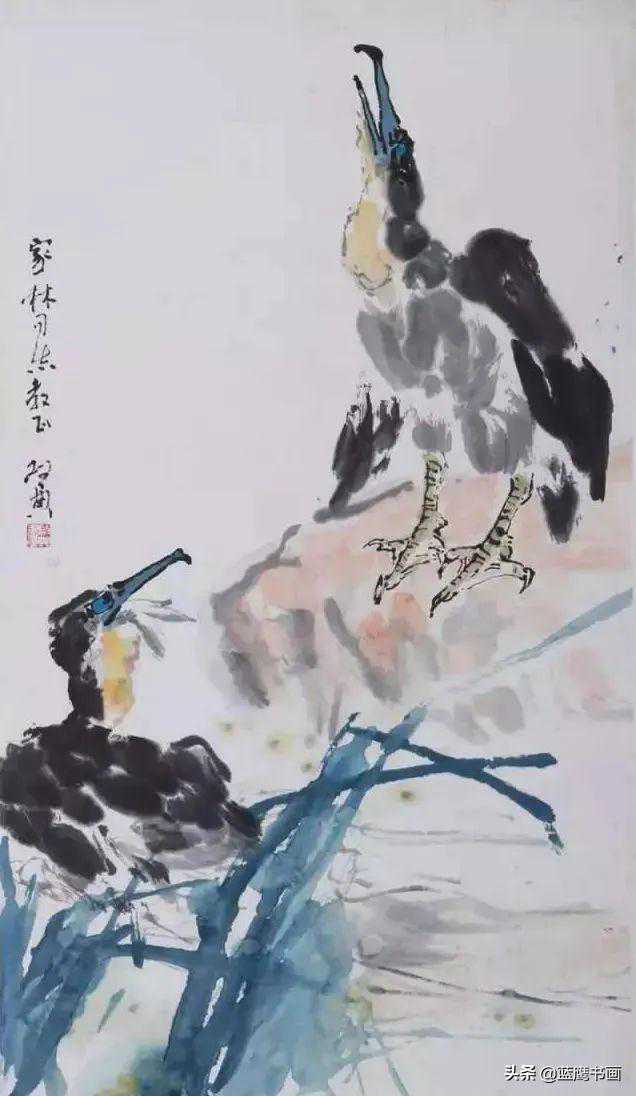 家林同志教正
头条 @蓝鹰书画